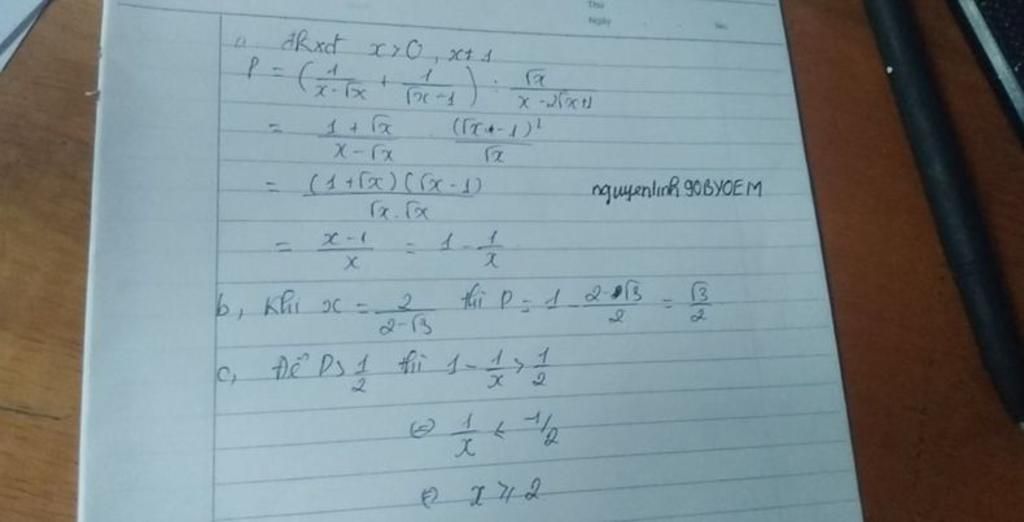 Thứ
Ngày No.
a, ĐKxđ x > 0, x ≠ 1
P = (1/(x-√x) + 1/(√x-1)) : √x/(x-2√x+1)
= (1+√x)/(x-√x) · (√x-1)²/√x
= (1+√x)(√x-1)/(√x.√x)
nguyenlinh90BYOEM
= (x-1)/x = 1 - 1/x
b, Khi x = 2/(2-√3) thì P = 1 - (2-√3)/2 = √3/2
c, Để P > 1/2 thì 1 - 1/x > 1/2
⇔ 1/x < -1/2
⇔ x ≥ 2